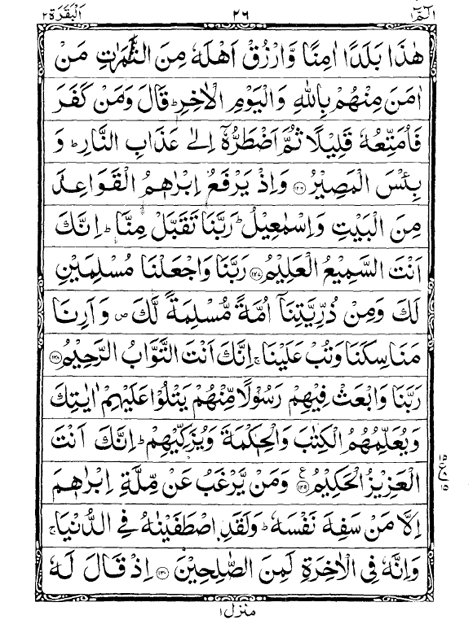 الٓمّٓ ١ ٢٦ اَلْبَقَرَة ٢
هٰذَا بَلَدًا اٰمِنًا وَّارْزُقْ اَهْلَهٗ مِنَ الثَّمَرٰتِ مَنْ
اٰمَنَ مِنْهُمْ بِاللّٰهِ وَالْيَوْمِ الْاٰخِرِ ؕ قَالَ وَمَنْ كَفَرَ
فَاُمَتِّعُهٗ قَلِيْلًا ثُمَّ اَضْطَرُّهٗۤ اِلٰى عَذَابِ النَّارِ ؕ وَ
بِئْسَ الْمَصِيْرُ ﴿۱۲۶﴾ وَاِذْ يَرْفَعُ اِبْرٰهٖمُ الْقَوَاعِدَ
مِنَ الْبَيْتِ وَاِسْمٰعِيْلُ ؕ رَبَّنَا تَقَبَّلْ مِنَّا ؕ اِنَّكَ
اَنْتَ السَّمِيْعُ الْعَلِيْمُ ﴿۱۲۷﴾ رَبَّنَا وَاجْعَلْنَا مُسْلِمَيْنِ
لَكَ وَمِنْ ذُرِّيَّتِنَاۤ اُمَّةً مُّسْلِمَةً لَّكَ ۪ وَاَرِنَا
مَنَاسِكَنَا وَتُبْ عَلَيْنَا ۚ اِنَّكَ اَنْتَ التَّوَّابُ الرَّحِيْمُ ﴿۱۲۸﴾
رَبَّنَا وَابْعَثْ فِيْهِمْ رَسُوْلًا مِّنْهُمْ يَتْلُوْا عَلَيْهِمْ اٰيٰتِكَ
وَيُعَلِّمُهُمُ الْكِتٰبَ وَالْحِكْمَةَ وَيُزَكِّيْهِمْ ؕ اِنَّكَ اَنْتَ
الْعَزِيْزُ الْحَكِيْمُ ﴿۱۲۹﴾ وَمَنْ يَّرْغَبُ عَنْ مِّلَّةِ اِبْرٰهٖمَ
اِلَّا مَنْ سَفِهَ نَفْسَهٗ ؕ وَلَقَدِ اصْطَفَيْنٰهُ فِى الدُّنْيَا ۚ
وَاِنَّهٗ فِى الْاٰخِرَةِ لَمِنَ الصّٰلِحِيْنَ ﴿۱۳۰﴾ اِذْ قَالَ لَهٗ
منزل ١